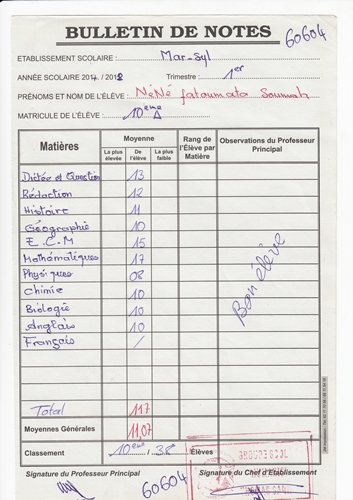 BULLETIN DE NOTES
60604
ETABLISSEMENT SCOLAIRE : Mar-Syl
ANNÉE SCOLAIRE 201 / 201 Trimestre : 1er
PRÉNOMS ET NOM DE L'ÉLÈVE : NéNé fatoumata Soumah
MATRICULE DE L'ÉLÈVE : 10eme A
Matières Moyenne Rang de l'Élève par Matière Observations du Professeur Principal
La plus élevée De l'élève La plus faible
Dictée et Question 13
Rédaction 12
Histoire 11
Géographie 10
E.C.M 15
Mathématiques 17
Physiques 08
Chimie 10
Biologie 10
Anglais 10
Français /
Bon élève
Total 117
Moyennes Générales 11,07
Classement 10eme / 38 Élèves
GROUPE SCOL
Signature du Professeur Principal
Signature du Chef d'Établissement
60604